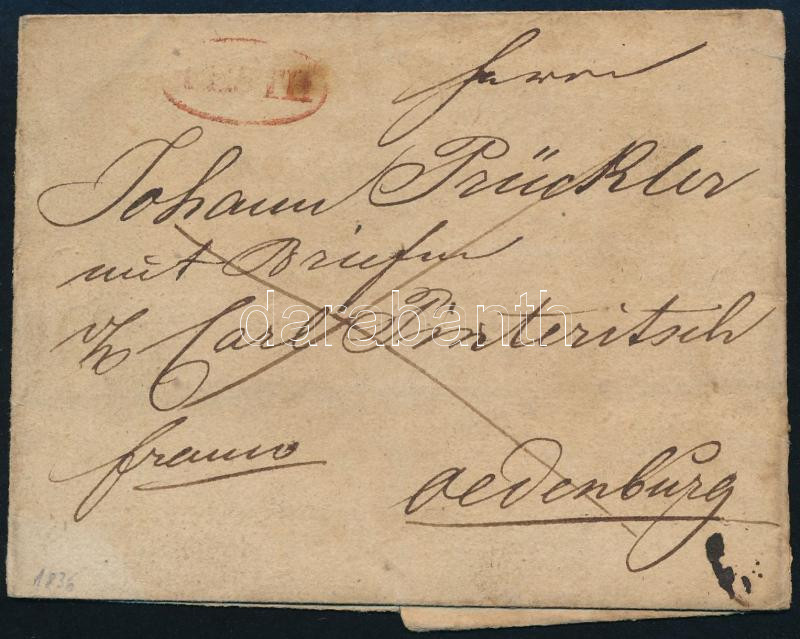 Herrn
Johann Prückler
mit Briefen
Carl Pinteritsch
darabanth
franco
Oedenburg
1836